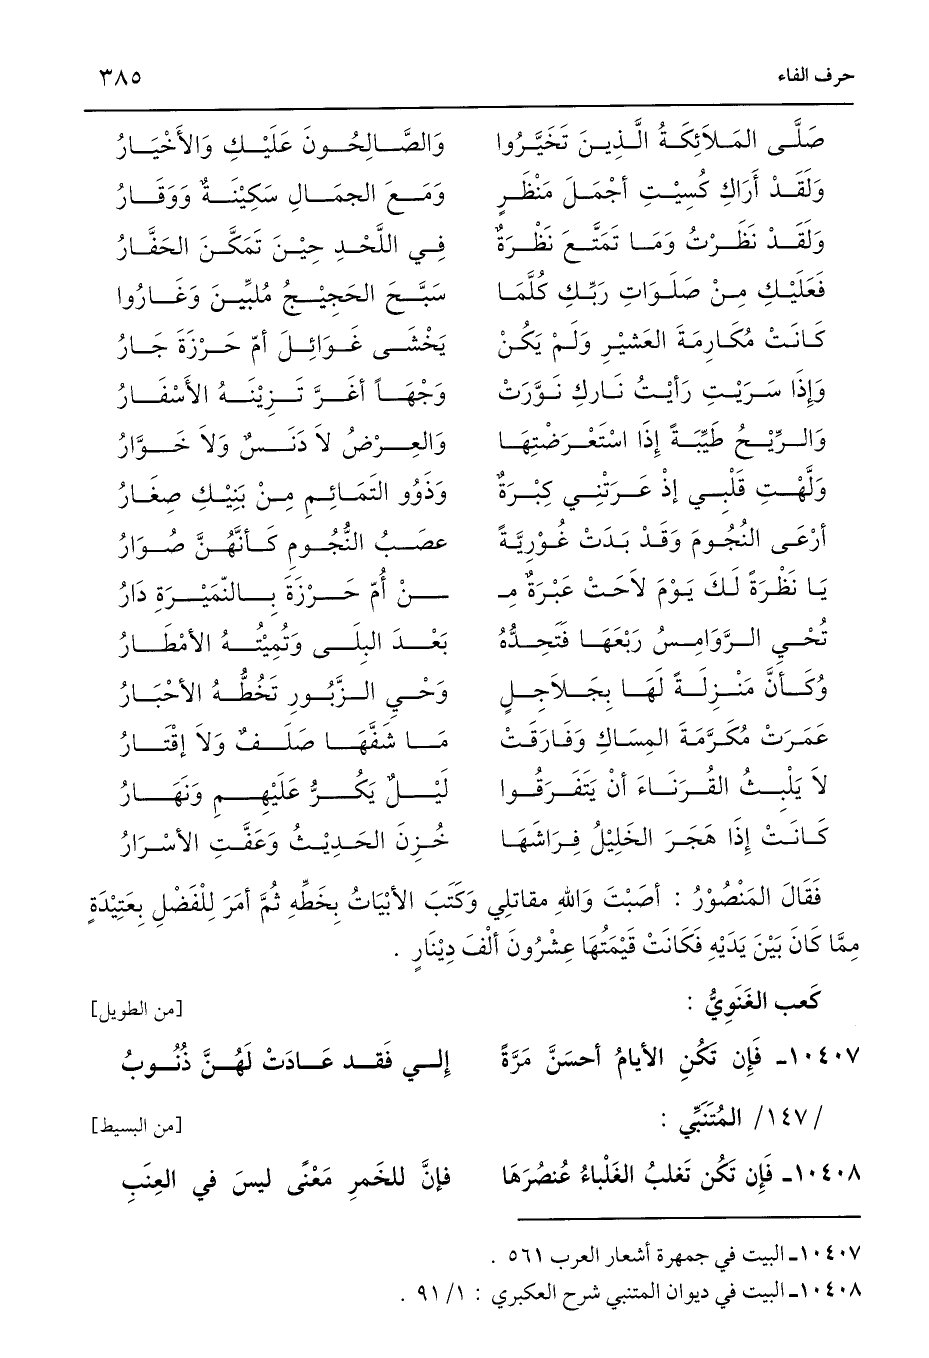 حرف الفاء ٣٨٥
صَلَّى المَلاَئِكَةُ الَّذِينَ تُخُيِّرُوا وَالصَّالِحُونَ عَلَيْكِ وَالأَخْيَارُ
وَلَقَدْ أَرَاكِ كُسِيْتِ أجْمَلَ مَنْظَرٍ وَمَعَ الجَمَالِ سَكِيْنَةٌ وَوَقَارُ
وَلَقَدْ نَظَرْتُ وَمَا تَمَتَّعَ نَظْرَةٌ فِي اللَّحْدِ حِيْنَ تَمَكَّنَ الحَفَّارُ
فَعَلَيْكِ مِنْ صَلَوَاتِ رَبِّكِ كُلَّمَا سَبَّحَ الحَجِيْجُ مُلَبِّيْنَ وَغَارُوا
كَانَتْ مُكَارِمَةَ العَشِيْرِ وَلَمْ يَكُنْ يَخْشَى غَوَائِلَ أُمّ حَزْرَةَ جَارُ
وَإِذَا سَرَيْتِ رَأَيْتُ نَارَكِ نَوَّرَتْ وَجْهَاً أَغَرَّ تَزِيْنَهُ الأَسْفَارُ
وَالرِّيْحُ طَيِّبَةٌ إِذَا اسْتَعْرَضْتِهَا وَالعِرْضُ لاَ دَنَسٌ وَلاَ خَوَّارُ
وَلَّهْتِ قَلْبِي إِذْ عَرَتْنِي كَبْرَةٌ وَذَوُو التَمَائِمِ مِنْ بَنِيْكِ صِغَارُ
أرْعَى النُّجُومَ وَقَدْ بَدَتْ غَوْرِيَّةً عصَبُ النُّجُومِ كَأَنَّهُنَّ صُوَارُ
يَا نَظْرَةً لَكَ يَوْمَ لاَحَتْ عَبْرَةٌ مِـ ـنْ أُمّ حَزْرَةَ بِالنُّمَيْرَةِ دَارُ
تُحْيِي الرَّوَامِسُ رَبْعَهَا فَتُجِدُّهُ بَعْدَ البِلَى وَتُمِيْتُهُ الأَمْطَارُ
وَكَأَنَّ مَنْزِلَةً لَهَا بِجَلاَجِلٍ وَحْيِ الزَّبُورِ تَخُطُّهُ الأَحْبَارُ
عَمَرَتْ مُكَرَّمَةَ المِسَاكِ وَفَارَقَتْ مَا شَفَّهَا صَلَفٌ وَلاَ إقْتَارُ
لاَ يَلْبَثُ القُرَنَاءُ أَنْ يَتَفَرَّقُوا لَيْلٌ يَكُرُّ عَلَيْهِم وَنَهَارُ
كَانَتْ إِذَا هَجَرَ الخَلِيْلُ فِرَاشَهَا خُزِنَ الحَدِيْثُ وَعَفَّتِ الأَسْرَارُ
فَقَالَ المَنْصُوْرُ : أَصَبْتَ وَاللهِ مقاتلِي وَكَتَبَ الأَبْيَاتُ بِخَطِّهِ ثُمَّ أَمَرَ لِلْفَضْلِ بِعَتِيْدَةٍ
مِمَّا كَانَ بَيْنَ يَدَيْهِ فَكَانَتْ قِيْمَتُهَا عِشْرُونَ أَلْفَ دِيْنَارٍ .
كَعب الغَنَوِيُّ : [من الطويل]
١٠٤٠٧ـ فَإِن تَكُنِ الأَيامُ أَحسَنَّ مَرَّةً إلي فَقَد عَادَتْ لَهُنَّ ذُنُوبُ
/١٤٧/ المُتَنَبِّي : [من البسيط]
١٠٤٠٨ـ فَإِن تَكُن تَغلبُ الغَلْبَاءُ عُنصُرَهَا فإنَّ للخَمرِ مَعْنًى ليسَ في العِنَبِ
١٠٤٠٧ـ البيت في جمهرة أشعار العرب ٥٦١ .
١٠٤٠٨ـ البيت في ديوان المتنبي شرح العكبري : ١/ ٩١ .